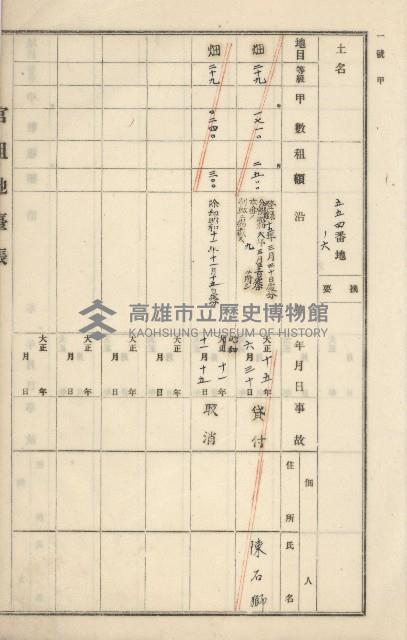 一號甲
土名
五五四番地ノ六
摘要
地目
等級
甲數
租額
沿
年月日
事故
個人
住所
氏名
畑
二十九
一七一〇
二五〇
大正十五年六月三十日
貸付
陳石獅
畑
二十九
〇二四〇
三〇〇
除却昭和十一年十一月十五日處分
昭和
大正十一年十一月十五日
取消
大正 年 月 日
大正 年 月 日
大正 年 月 日
大正 年 月 日
官租地臺帳
高雄市立歷史博物館
KAOHSIUNG MUSEUM OF HISTORY